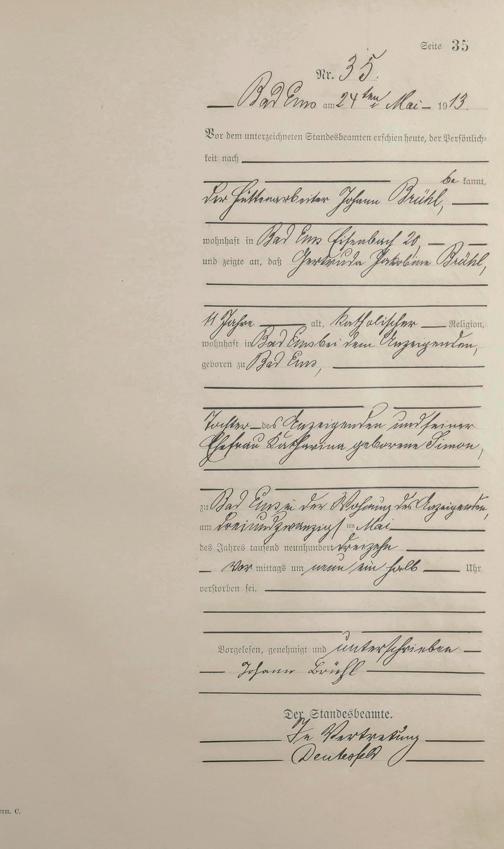 Seite 35
Nr. 35.
Bad Ems am 24ten Mai 1913.
Vor dem unterzeichneten Standesbeamten erschien heute, der Persönlich-
keit nach
be kannt,
der Hüttenarbeiter Johann Brühl,
wohnhaft in Bad Ems Eisenbach 20,
und zeigte an, daß Gertruda Jakobine Brühl,
11 Jahre alt, katholischer Religion,
wohnhaft in Bad Ems bei dem Anzeigenden,
geboren zu Bad Ems,
Tochter des Anzeigenden und seiner
Ehefrau Katharina geborene Simon,
zu Bad Ems in der Wohnung des Anzeigenden,
am dreiundzwanzigst en Mai
des Jahres tausend neunhundert dreizehn
Vor mittags um neun ein halb Uhr
verstorben sei.
Vorgelesen, genehmigt und unterschrieben
Johann Brühl
Der Standesbeamte.
In Vertretung